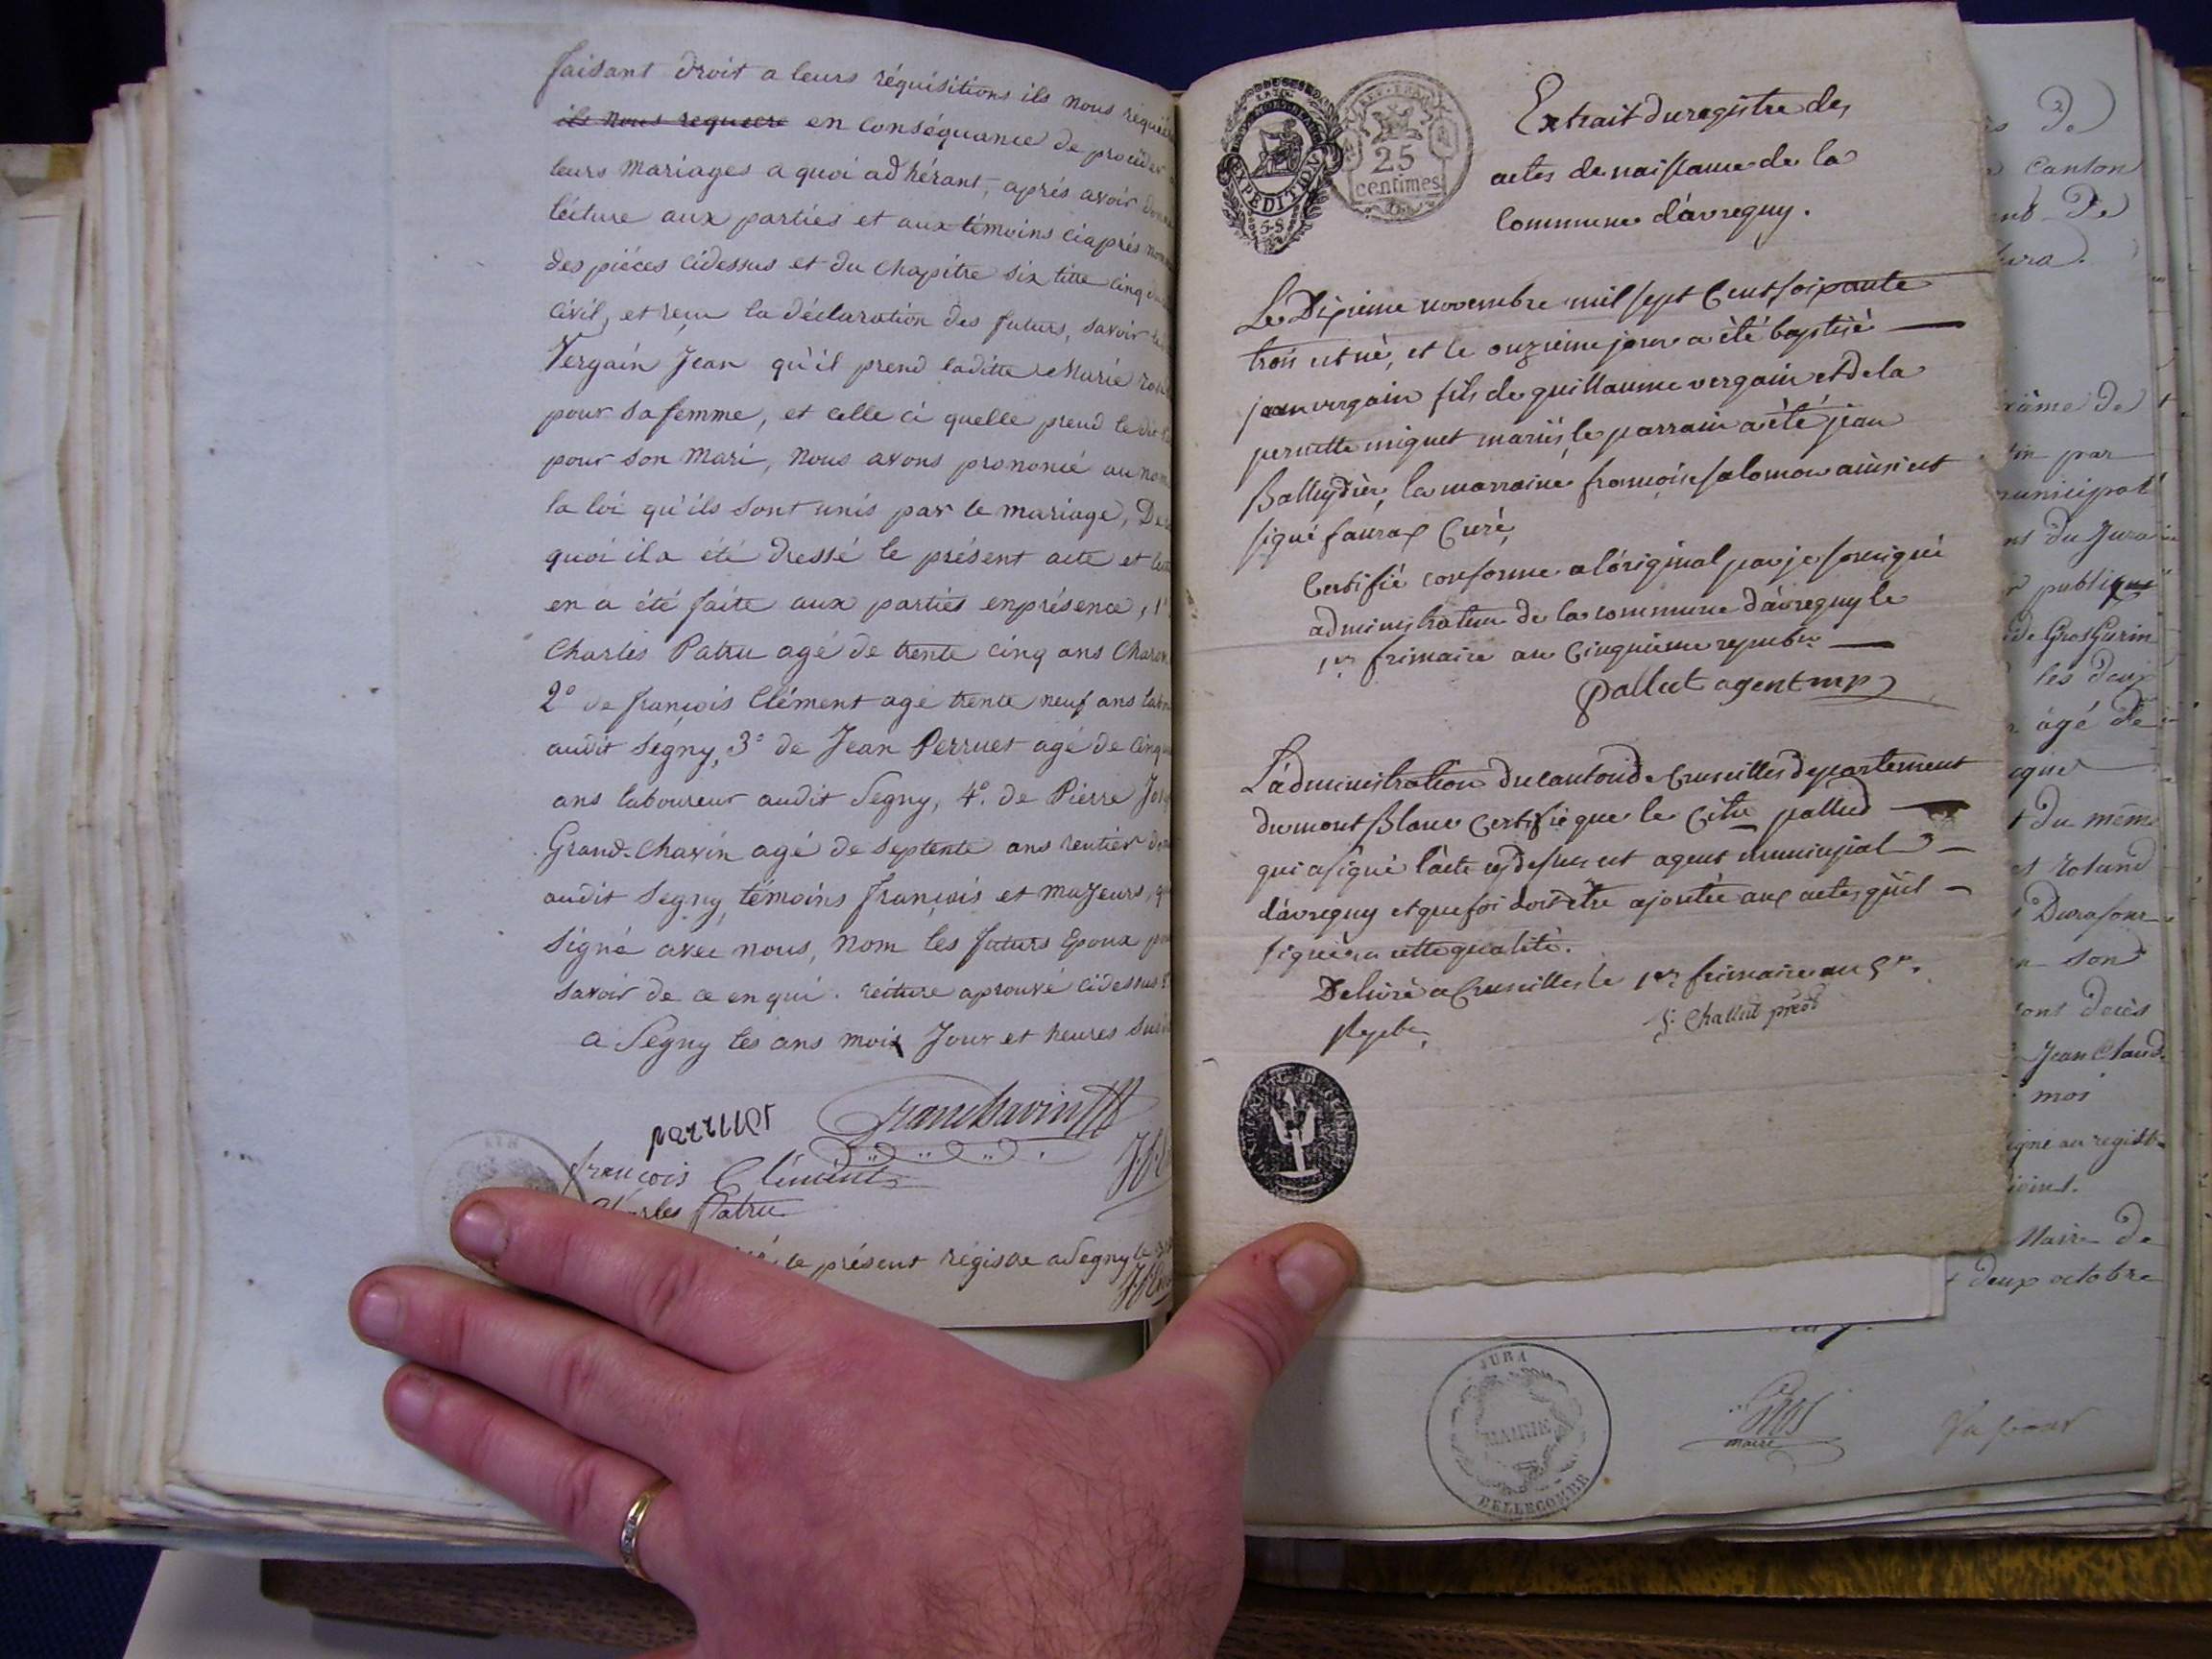 faisant droit a leurs réquisitions ils nous
ils nous requiere en conséquance de procéder
leurs mariages a quoi adhérant, aprés avoir
lécture aux parties et aux témoins ciaprés
des piéces cidessus et du chapitre six titre cinq
Civil, et reçu la déclaration des futurs, savoir
Vergain Jean qu'il prend laditte Marie
pour sa femme, et celle ci quelle prend le dit
pour son mari, nous avons prononcé au nom
la loi qu'ils sont unis par le mariage, De
quoi il a été dressé le présent acte et
en a été faite aux parties enprésence, 1°
Charles Patru agé de trente cinq ans
2° de françois Clément agé trente neuf ans
audit Segny, 3° de Jean Perruet agé de
ans laboureur audit Segny, 4°. de Pierre
Grand-Chavin agé de Septente ans rentier
audit Segny, témoins françois et majeurs,
Signé avec nous, nom les futurs Epoux
savoir de ce enqui. aprouvé cidessus
a Segny les ans mois Jour et heures
perruet
Grandchavin
françois Clément
Charles Patru
le présent régistre a Segny
EXPEDITION
5-S
25
centimes
Extrait du registre des
actes de naissance de la
Commune d'avregny.
Le Dixieme novembre mil sept Cent soixante
trois est né, et le onzieme jour a été baptisé
jean vergain fils de guillaume vergain et de la
pernette miguet mariés, le parrain a été jean
Balleydier, la marraine françoise salomon ainsi est
signé faurax Curé,
Certifié conforme a lóriginal par je sousigné
administrateur de la commune dávregny le
1er frimaire an Cinquieme repubn
Pallud agent mp
L'administration du canton de Cruseilles departement
du mont Blanc Certifie que le Citn pallud
qui a signé lácte cy dessus est agent municipal
dávregny et que foi doit être ajoutée aux actes qu'il
signe en cette qualité.
Delivré a Cruseilles le 1er frimaire an 5e.
Challud
De
canton
De
Jura.
de
par
municipal
du Jura
publique
de GrosGurin
les deux
agé de
du même
et rotund
son
décès
Jean Claude
moi
signé au registre
Maire de
deux octobre
JURA
MAIRIE
BELLECOMBE
Gros
maire